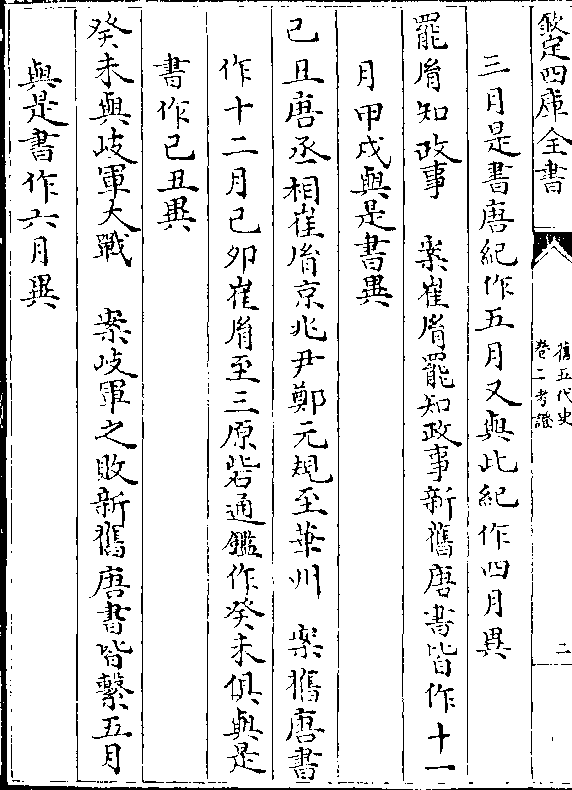 欽定四庫全書
舊五代史
卷二考證
二
三月是書唐紀作五月又與此紀作四月異
罷𦙍知政事　案崔𦙍罷知政事新舊唐書皆作十一
月甲戌與是書異
己丑唐丞相崔𦙍京兆尹鄭元規至華州　案舊唐書
作十二月己卯崔𦙍至三原砦通鑑作癸未俱與是
書作己丑異
癸未與岐軍大戰　案岐軍之敗新舊唐書皆繫五月
與是書作六月異